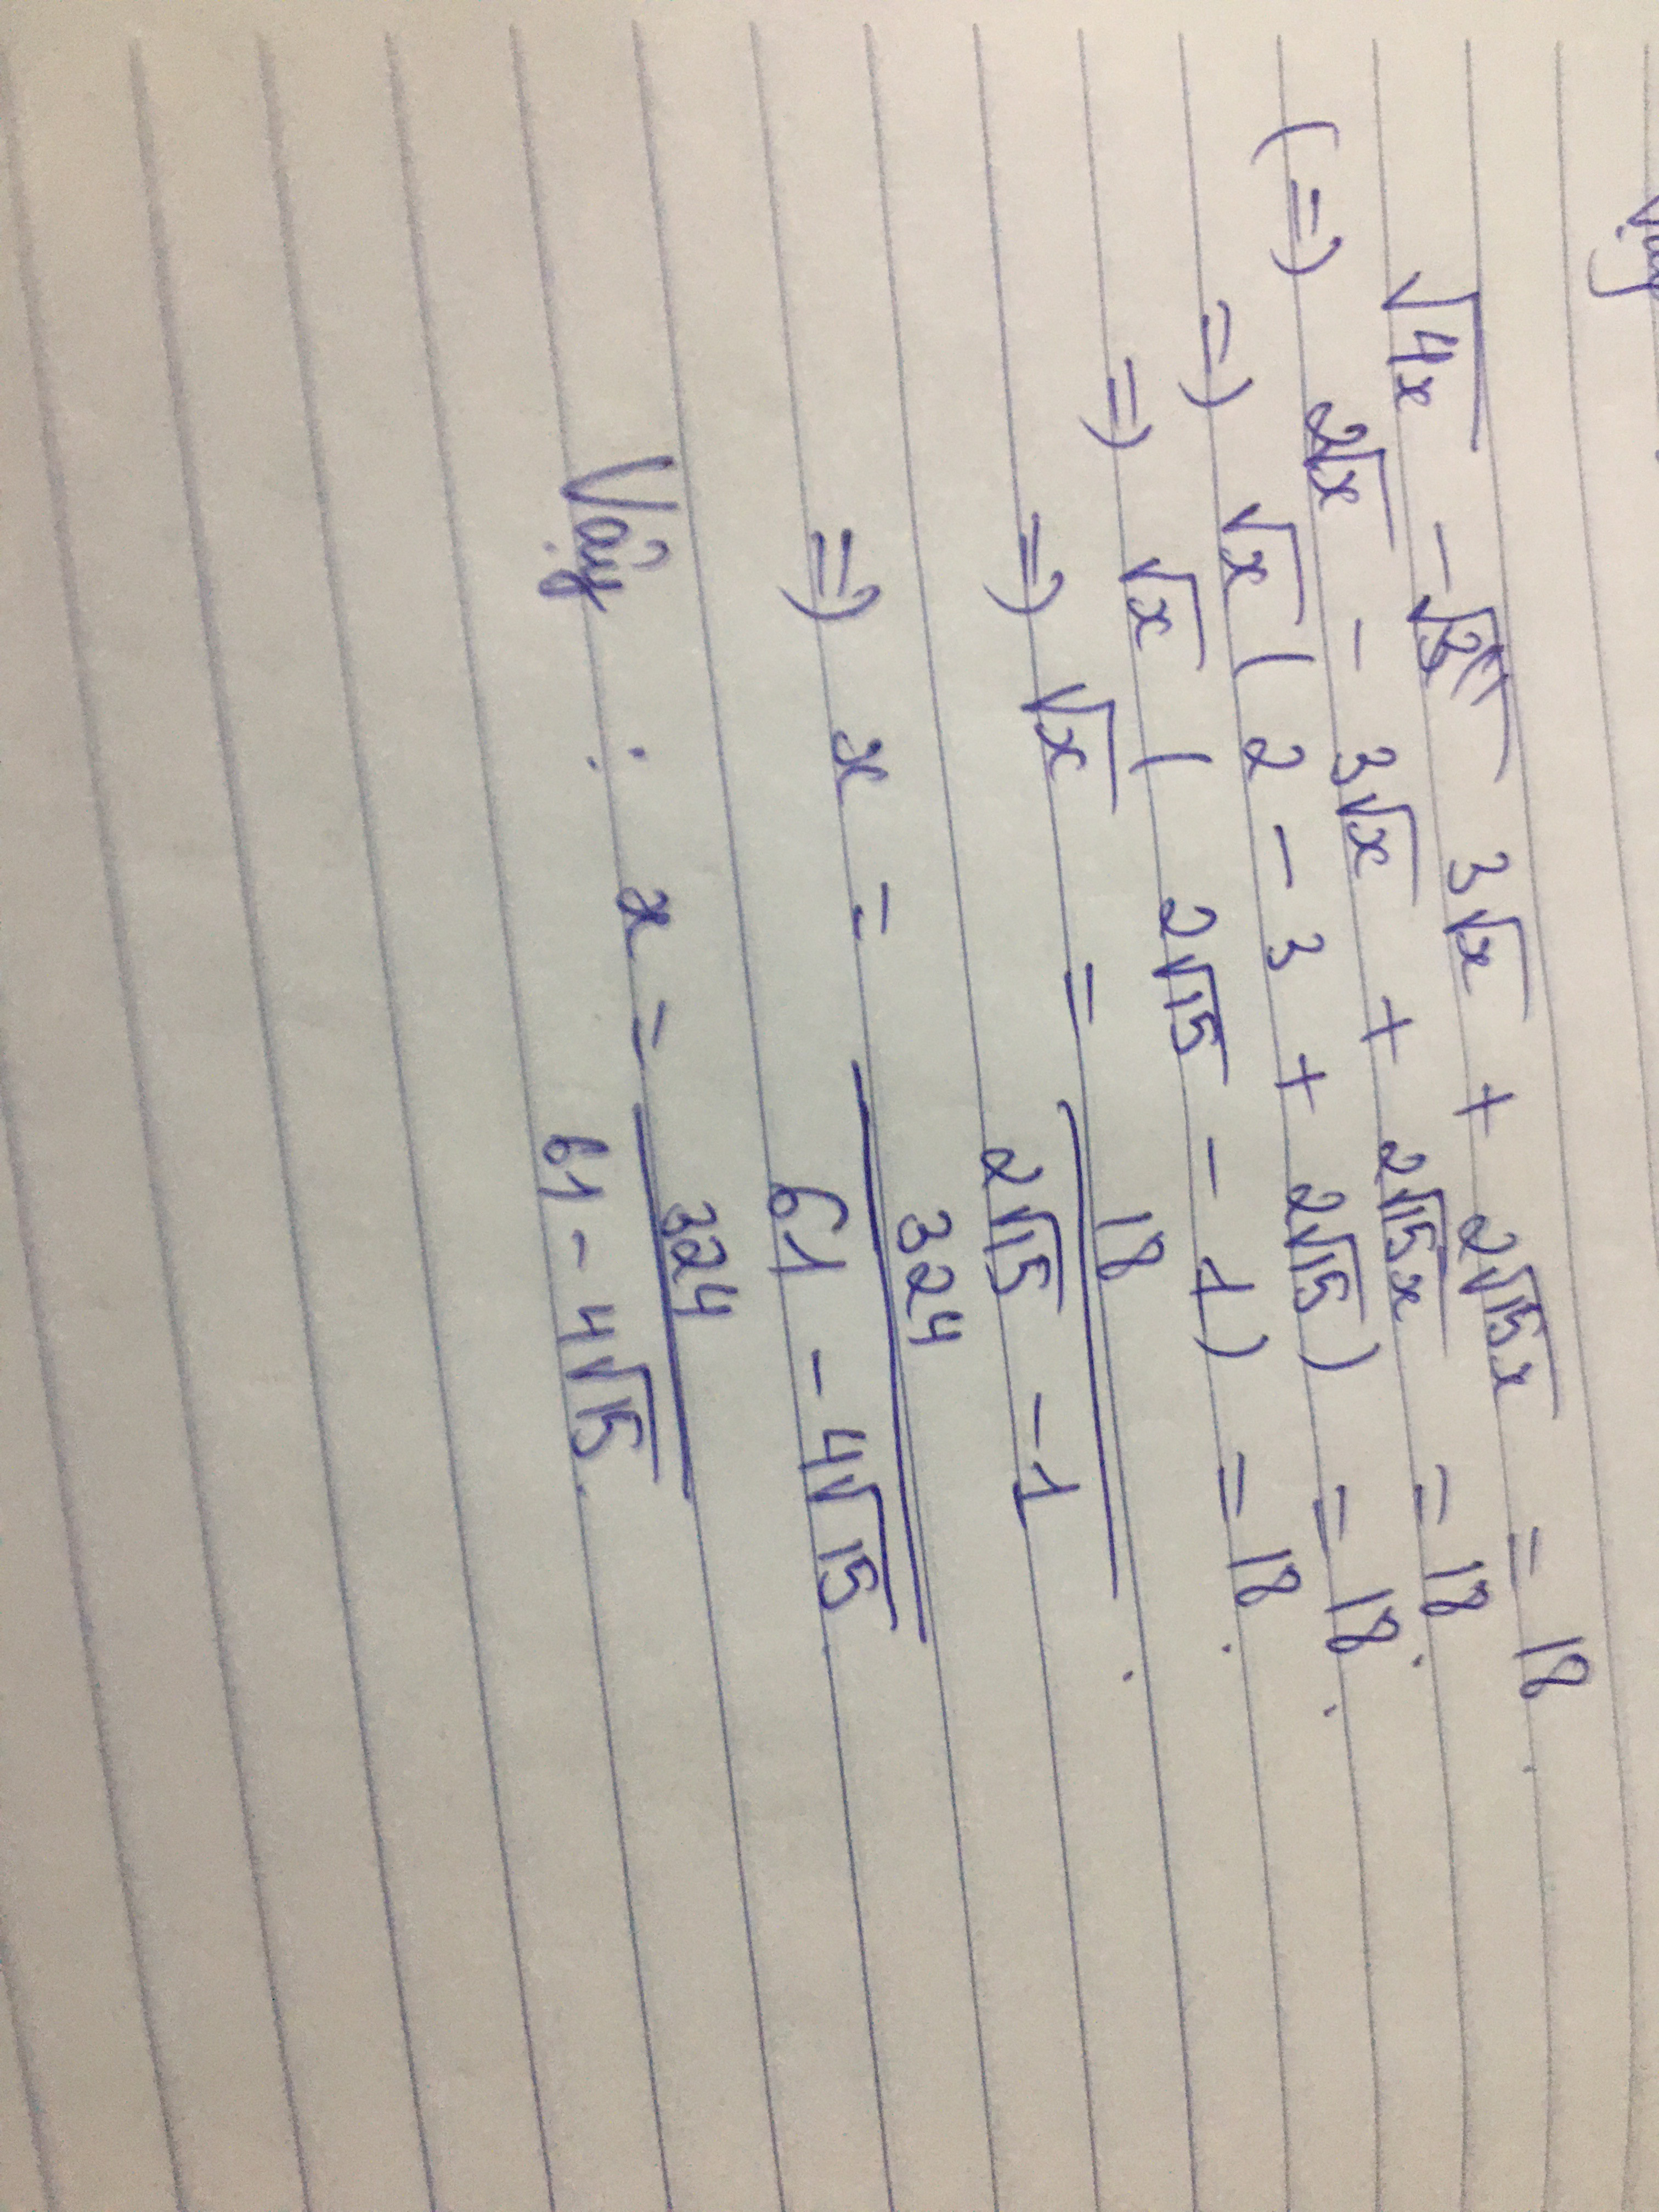 √4x - 3√x + 2√15x = 18.
(=) 2√x - 3√x + 2√15x = 18.
=) √x (2 - 3 + 2√15) = 18.
=) √x (2√15 - 1) = 18.
=) √x = 18 / 2√15 - 1 .
=) x = 324 / 61 - 4√15 .
Vậy : x = 324 / 61 - 4√15 .